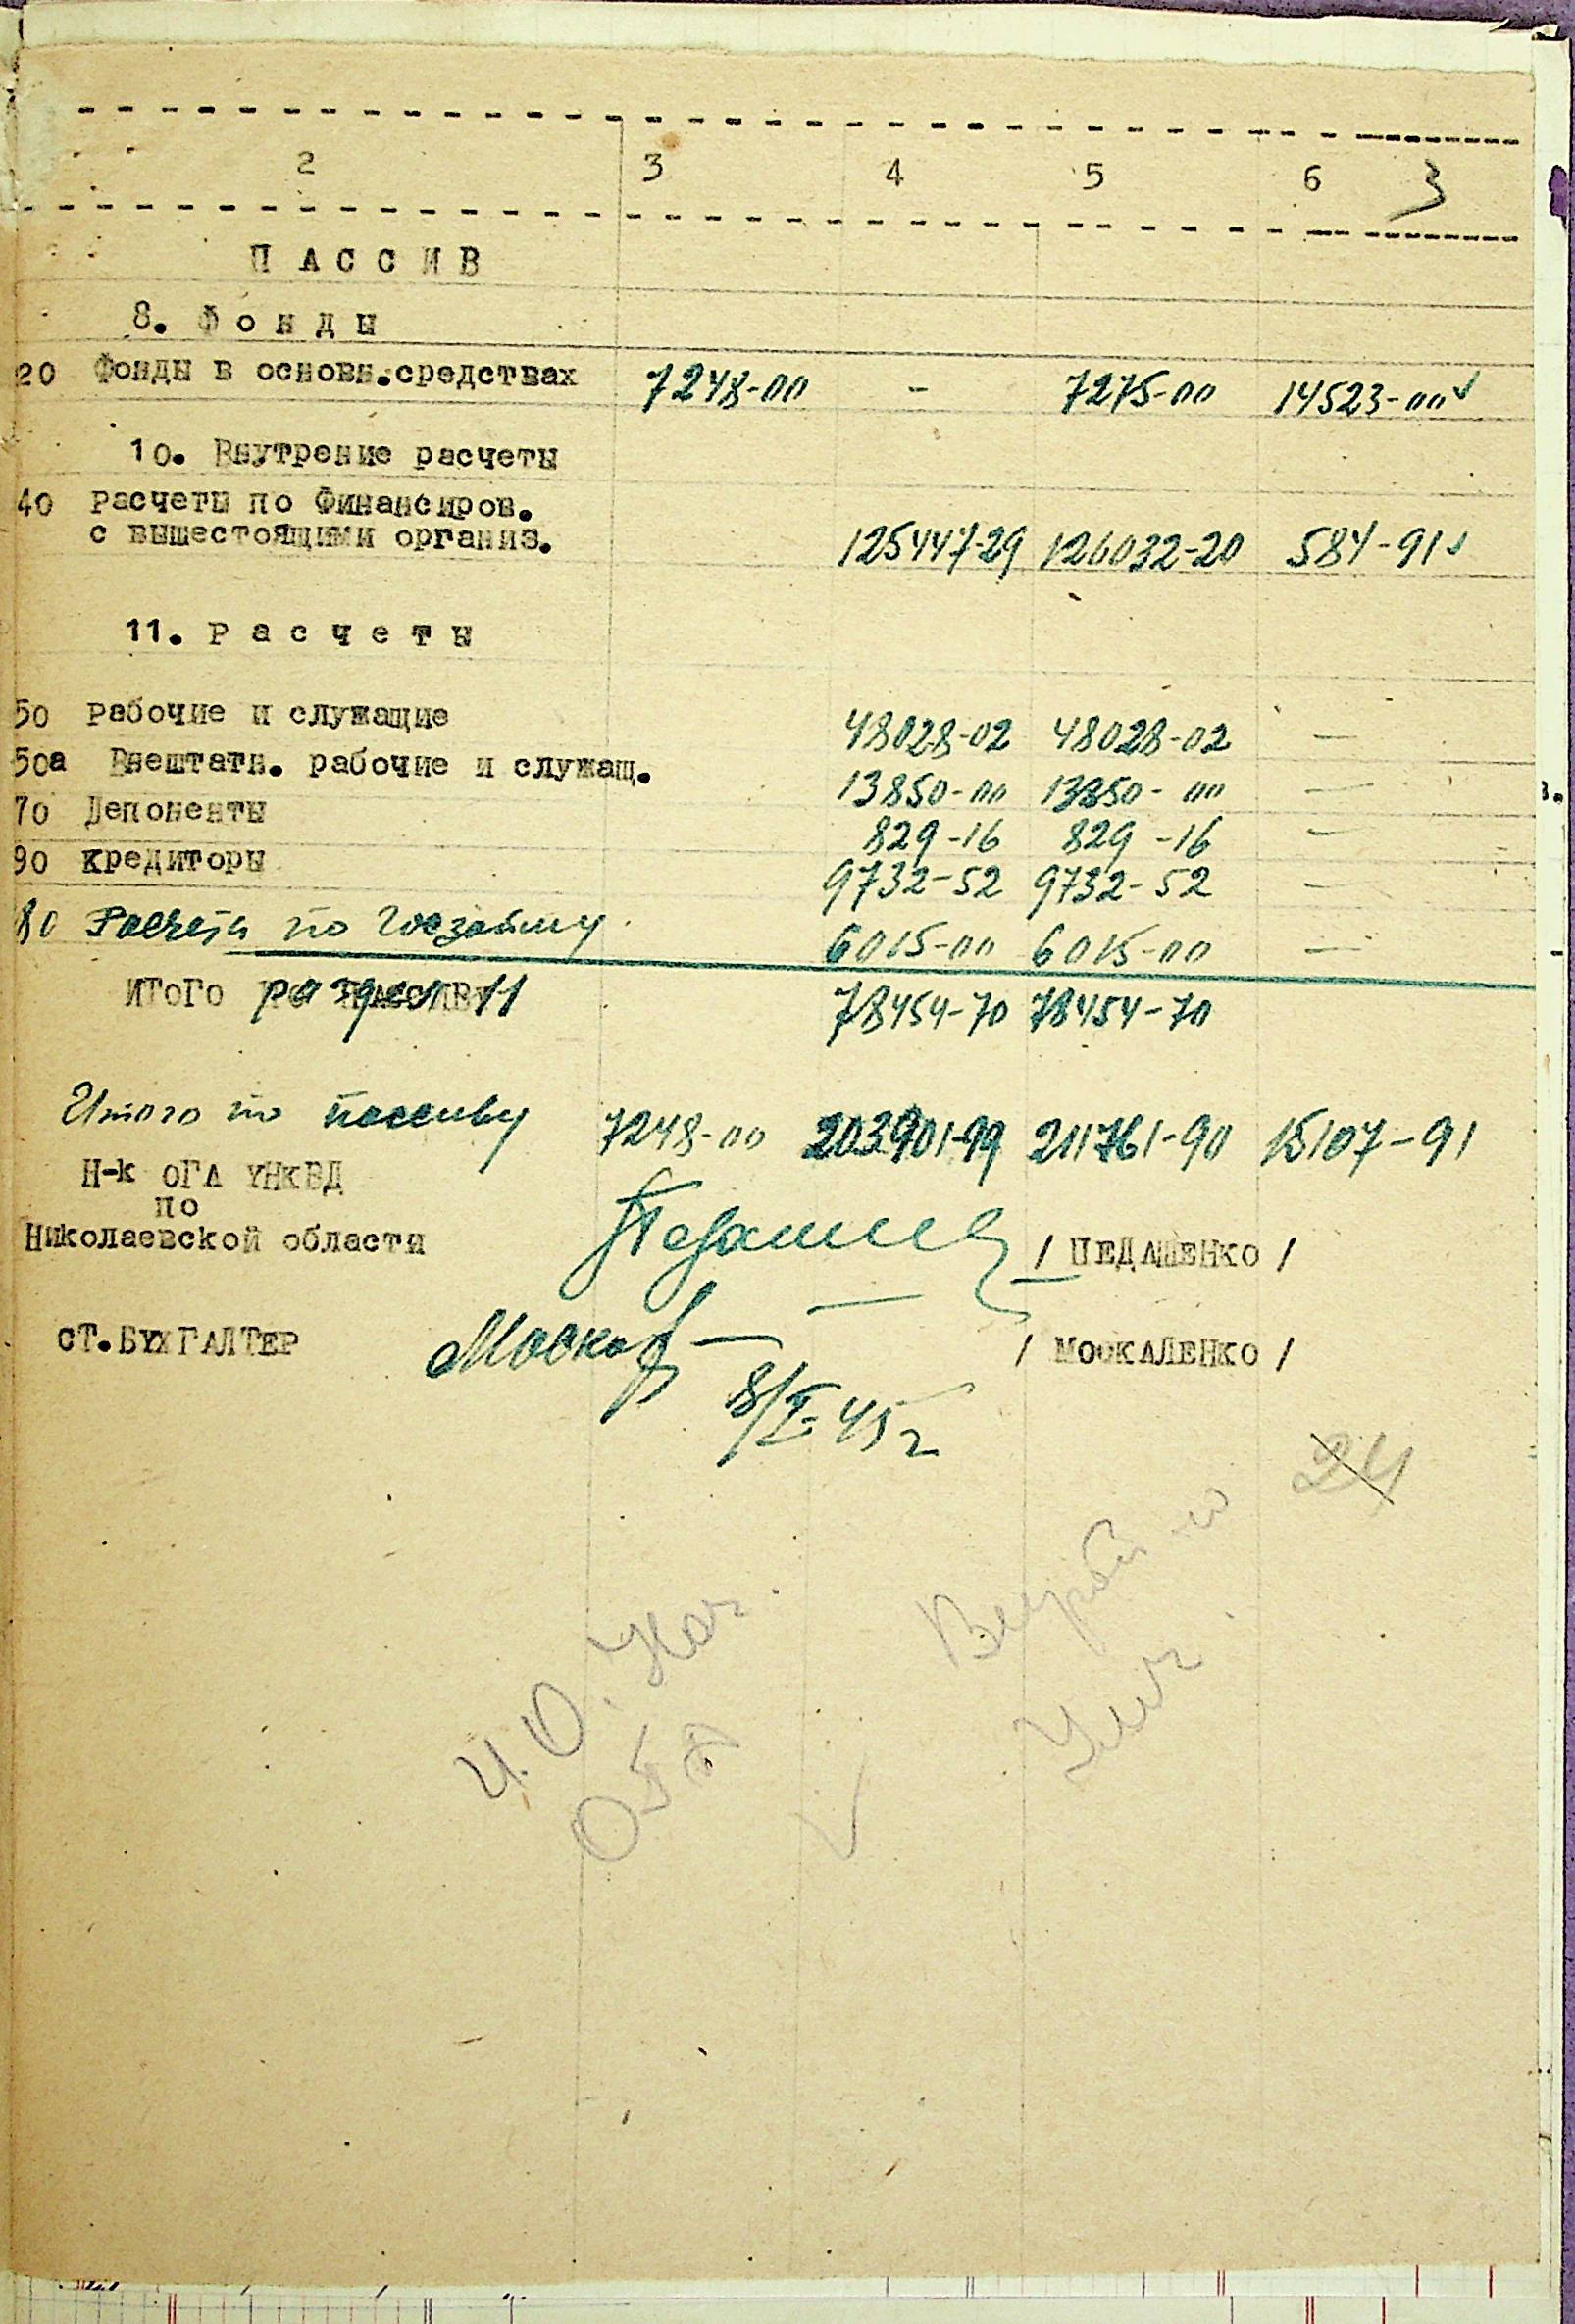 2 3 4 5 6 3
ПАССИВ
8. Фонды
20 Фонды в основн.средствах 7248-00 - 7275-00 14523-00 ✓
10. Внутрение расчеты
40 Расчеты по Финансиров.
с вышестоящими организ. 125447-29 126032-20 584-91 ✓
11. Расчеты
50 Рабочие и служащие 48028-02 48028-02 —
50а Внештатн. рабочие и служащ. 13850-00 13850-00 —
70 Депоненты 829-16 829-16 —
90 Кредиторы 9732-52 9732-52 —
80 Расчеты по Госзайму 6015-00 6015-00 —
ИТОГО 11 78454-70 78454-70
Итого по пассиву 7248-00 203901-99 211761-90 15107-91
Н-к ОГА УНКВД
по
Николаевской области / ПЕДАШЕНКО /
СТ.БУХГАЛТЕР / МОСКАЛЕНКО /
8/I-45 г
24
И.О. Нач.